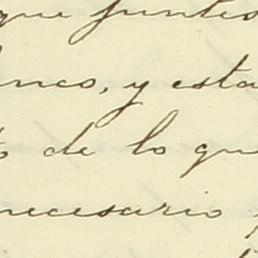 que juntos
y esta
de lo que
necesario